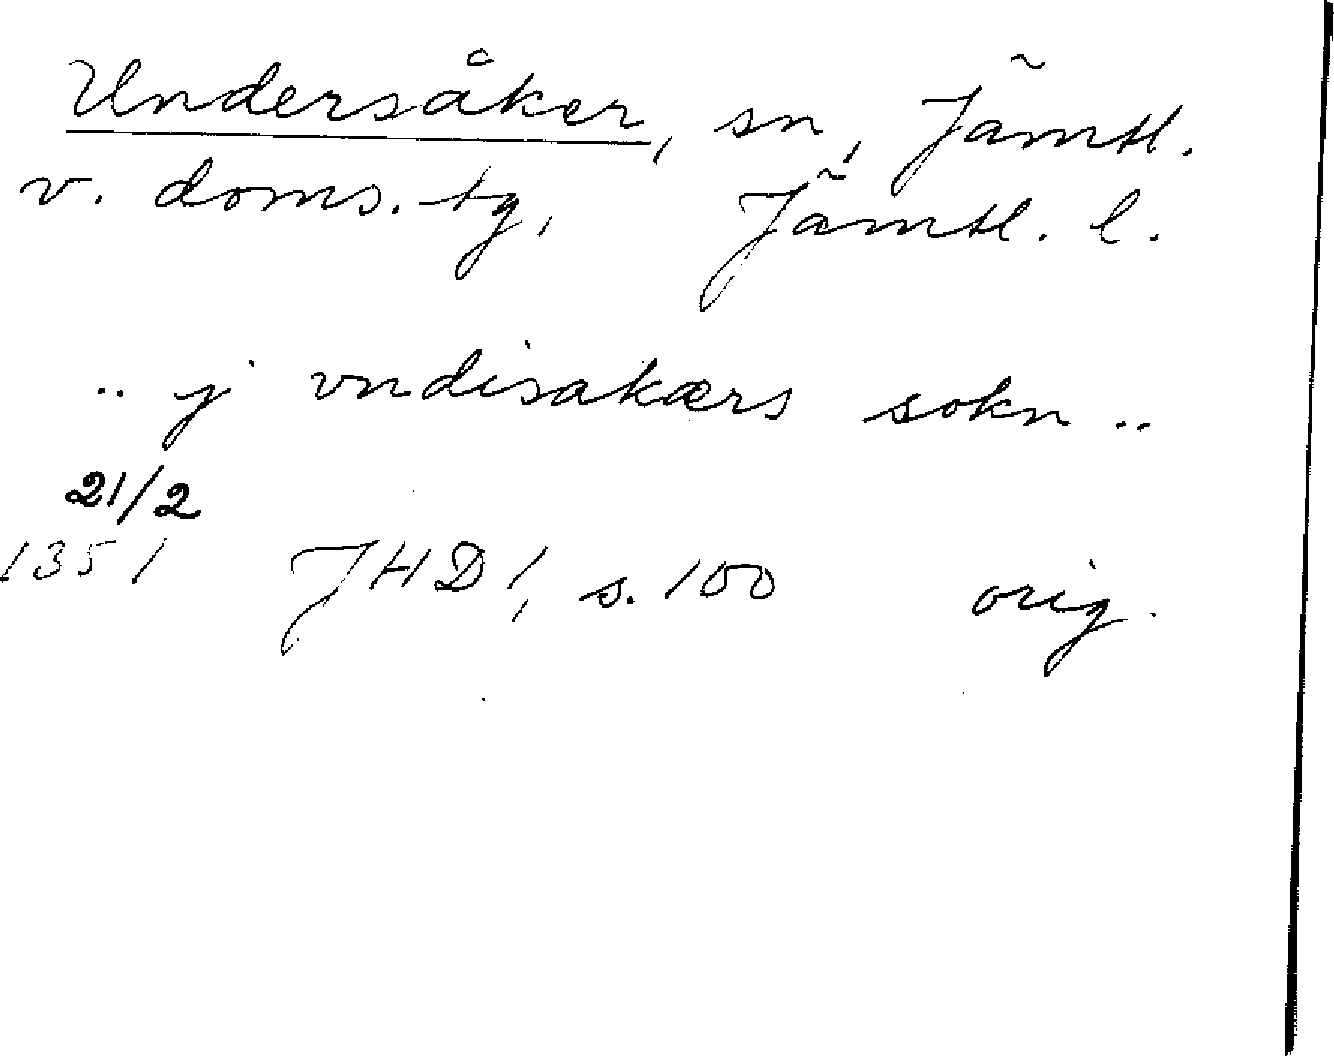 Undersåker, sn, Jämtl.
v. doms. tg, Jämtl. l.
.. j vndisakærs sokn ..
21/2
1351 JHD 1, s. 100 orig.